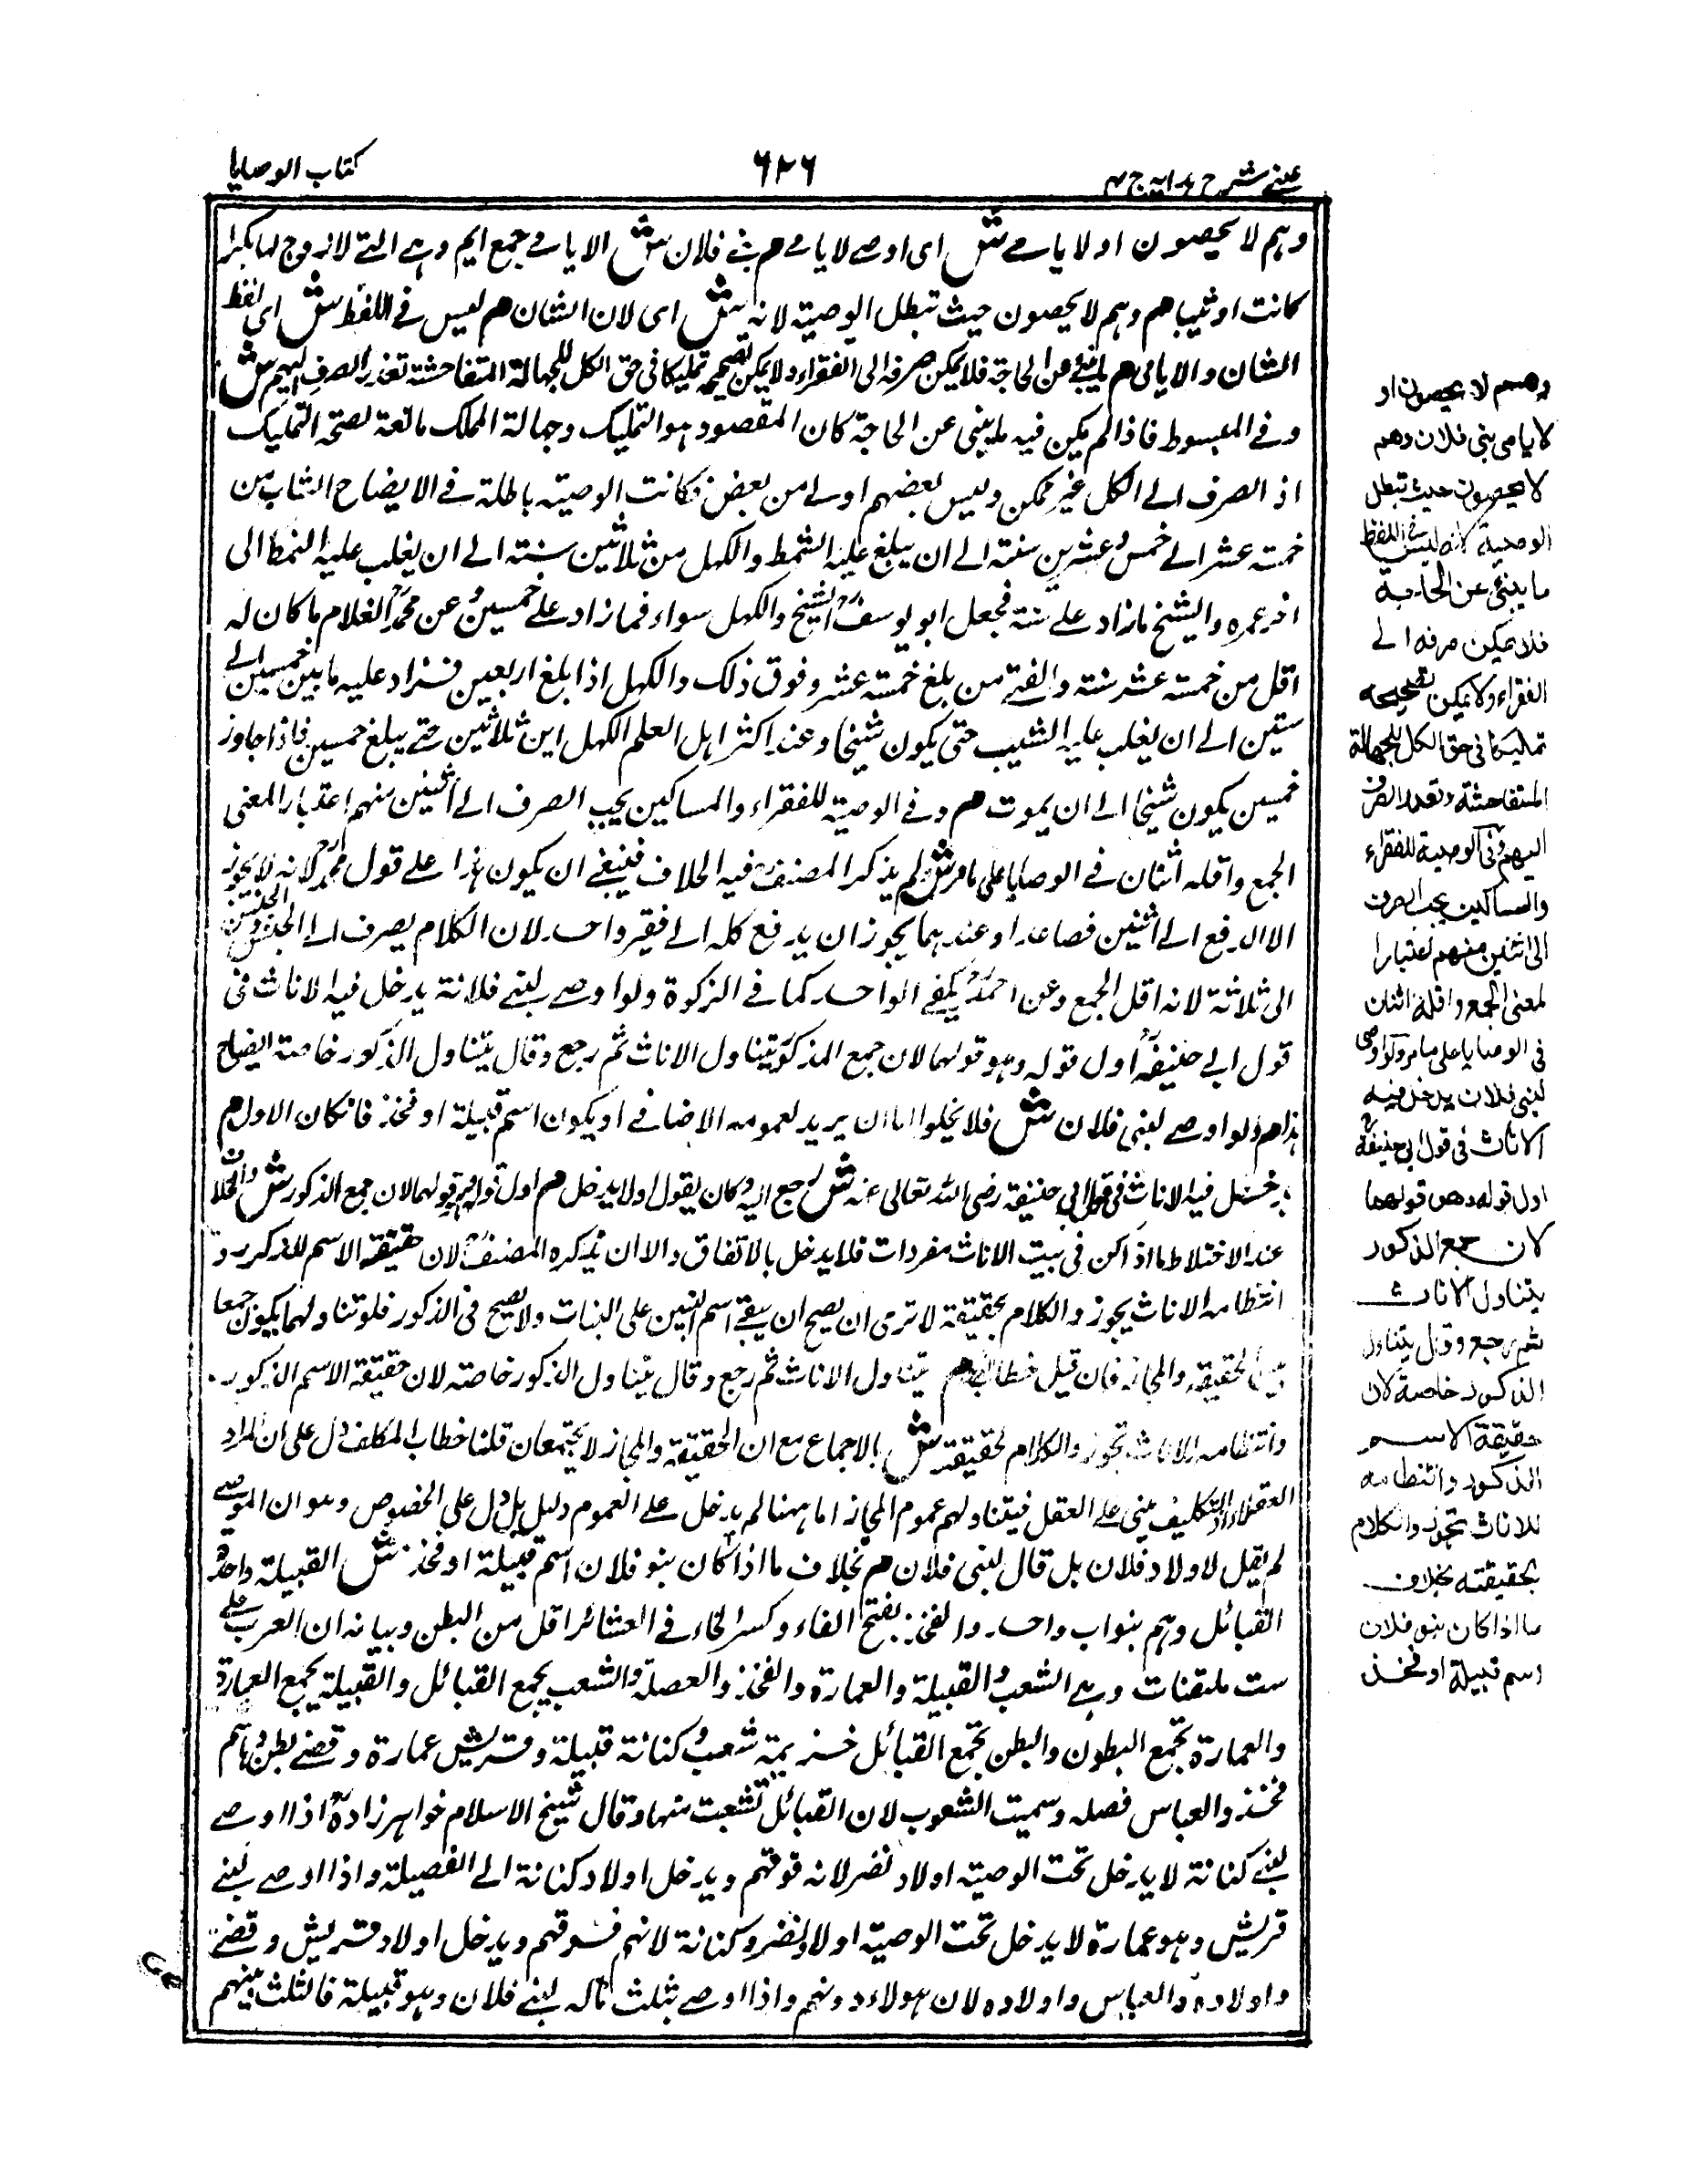 عینی شرح ہدایہ ج ۴
۶۲۶
کتاب الوصایا
وہم لا یحصون او لایامے ش ای اوصے لایامے م بنے فلان ش الایامے جمع ایم وہے التے لا زوج لہا بکرا
کانت او ثیبا م وہم لا یحصون حیث تبطل الوصیۃ لانہ ش ای لان الشان م لیس فے اللفظ ش ای لفظ
الشان والایامی م ما ینبئ عن الحاجۃ فلا یمکن صرفہ الی الفقراء ولا یمکن تصحیحہ تملیکا فی حق الکل للجہالۃ المتفاحشۃ تعذر الصرف الیہم ش
وفے المبسوط فاذا لم یکن فیہ ما ینبی عن الحاجۃ کان المقصود ہو التملیک وجہالۃ المملک مانعۃ لصحۃ التملیک
اذ الصرف الے الکل غیر ممکن ولیس بعضہم اولے من بعض فکانت الوصیۃ باطلۃ فے الایضاح الشاب من
خمسۃ عشر الے خمس وعشرین سنۃ الے ان یبلغ علیہ الشمط والکہل من ثلاثین سنۃ الے ان یغلب علیہ الشمط الی
اخر عمرہ والشیخ ما زاد علے ستۃ فجعل ابو یوسف الشیخ والکہل سواء فما زاد علے خمسین وعن محمد الغلام ما کان لہ
اقل من خمسۃ عشر سنۃ والفتے من بلغ خمسۃ عشر وفوق ذلک والکہل اذا بلغ اربعین فزاد علیہ ما بین خمسین الے
ستین الے ان یغلب علیہ الشیب حتی یکون شیخا وعند اکثر اہل العلم الکہل ابن ثلاثین حتے یبلغ خمسین فاذا جاوز
خمسین یکون شیخا الے ان یموت م وفے الوصیۃ للفقراء والمساکین یجب الصرف الے اثنین منہم اعتبارا لمعنی
الجمع واقلہ اثنان فے الوصایا علی ما مر ش ولم یذکر المصنف فیہ الخلاف فینبغے ان یکون ہذا علے قول محمد لانہ لا یجوز
الا الدفع الے اثنین فصاعدا وعندہما یجوز ان یدفع کلہ الے فقیر واحد لان الکلام یصرف الے الجنس
الی ثلاثۃ لانہ اقل الجمع وعن احمد یکفے الواحد کما فے الزکوۃ ولو اوصے لبنے فلانۃ یدخل فیہ الاناث فی
قول ابے حنیفۃ اول قولہ وہو قولہما لان جمع المذکور یتناول الاناث ثم رجع وقال یتناول الذکور خاصۃ ایضاح
ہذا م ولو اوصے لبنی فلان ش فلا یخلو اما ان یرید لعمومہ الاضافے او یکون اسم قبیلۃ او فخذ فان کان الاول م
یدخل فیہ الاناث فی قول ابی حنیفۃ رضی اللہ تعالی عنہ ش رجع الیہ وکان یقول اولا یدخل م اول قولہ وہو قولہما لان جمع الذکور ش
عند الاختلاط ما اذا کن فی بیت الاناث مفردات فلا یدخل بالاتفاق والا ان یذکرہ المصنف لان حقیقۃ الاسم للذکور
انتظامہ الاناث یجوز والکلام بحقیقۃ لا تری ان یصح ان یبقے اسم البنین علی البنات ولا یصح فی الذکور فلو تناولہما یکون جمعا
بین الحقیقۃ والمجاز فان قیل خطاب م یتناول الاناث ثم رجع وقال یتناول الذکور خاصۃ لان حقیقۃ الاسم الذکور
وانتظامہ للاناث تجوز والکلام لحقیقتہ ش بالاجماع مع ان الحقیقۃ والمجاز لا یجتمعان قلنا خطاب المکلف دل علی ان المراد
العقلاء اذ التکلیف مبنی علے العقل فیتناولہم عموم المجاز اما ہہنا لم یدخل علے العموم دلیل بل دل علی الخصوص وہو ان الموصے
لم یقل لاولاد فلان بل قال لبنی فلان م بخلاف ما اذا کان بنو فلان اسم قبیلۃ او فخذ ش القبیلۃ واحد
القبائل وہم بنو اب واحد والفخذ بفتح الفاء وکسر الخاء فے العشائر اقل من البطن وبیانہ ان العرب علے
ست ملتقنات وہے الشعب والقبیلۃ والعمارۃ والفخذ والعصلۃ والشعب یجمع القبائل والقبیلۃ یجمع العمارۃ
والعمارۃ تجمع البطون والبطن تجمع القبائل خزیمۃ شعب وکنانۃ قبیلۃ وقریش عمارۃ وقصے بطن وہاشم
فخذ والعباس فصلہ وسمیت الشعوب لان القبائل تشعبت منہا وقال شیخ الاسلام خواہر زادہ اذا اوصے
لبنے کنانۃ لا یدخل تحت الوصیۃ اولاد نضر لانہ فوقہم ویدخل اولاد کنانۃ الے الفصیلۃ واذا اوصے لبنے
قریش وہو عمارۃ لا یدخل تحت الوصیۃ اولاد نضر وکنانۃ لانہم فوقہم ویدخل اولاد قریش وقصے
واولادہ والعباس واولادہ لان ہولاء دونہم واذا اوصے بثلث مالہ لبنے فلان وہو قبیلۃ فالثلث بینہم
وهم لا یحصون او
لایامی بنی فلان وهم
لا یحصون حیث تبطل
الوصیة لانه لیس فی اللفظ
ما ینبئ عن الحاجة
فلا یمکن صرفه الے
الفقراء ولا یمکن تصحیحه
تملیکا فی حق الکل للجهالة
المتفاحشة وتعذر الصرف
الیهم وفی الوصیة للفقراء
والمساکین یجب الصرف
الی اثنین منهم اعتبارا
لمعنی الجمع واقله اثنان
فی الوصایا علی ما مر ولو اوصی
لبنی فلان یدخل فیه
الاناث فی قول ابی حنیفة
اول قوله وهو قولهما
لان جمع الذکور
یتناول الاناث
ثم رجع وقال یتناول
الذکور خاصة لان
حقیقة الاسم
الذکور وانتظامه
للاناث تجوز والکلام
بحقیقته بخلاف
ما اذا کان بنو فلان
اسم قبیلة او فخذ